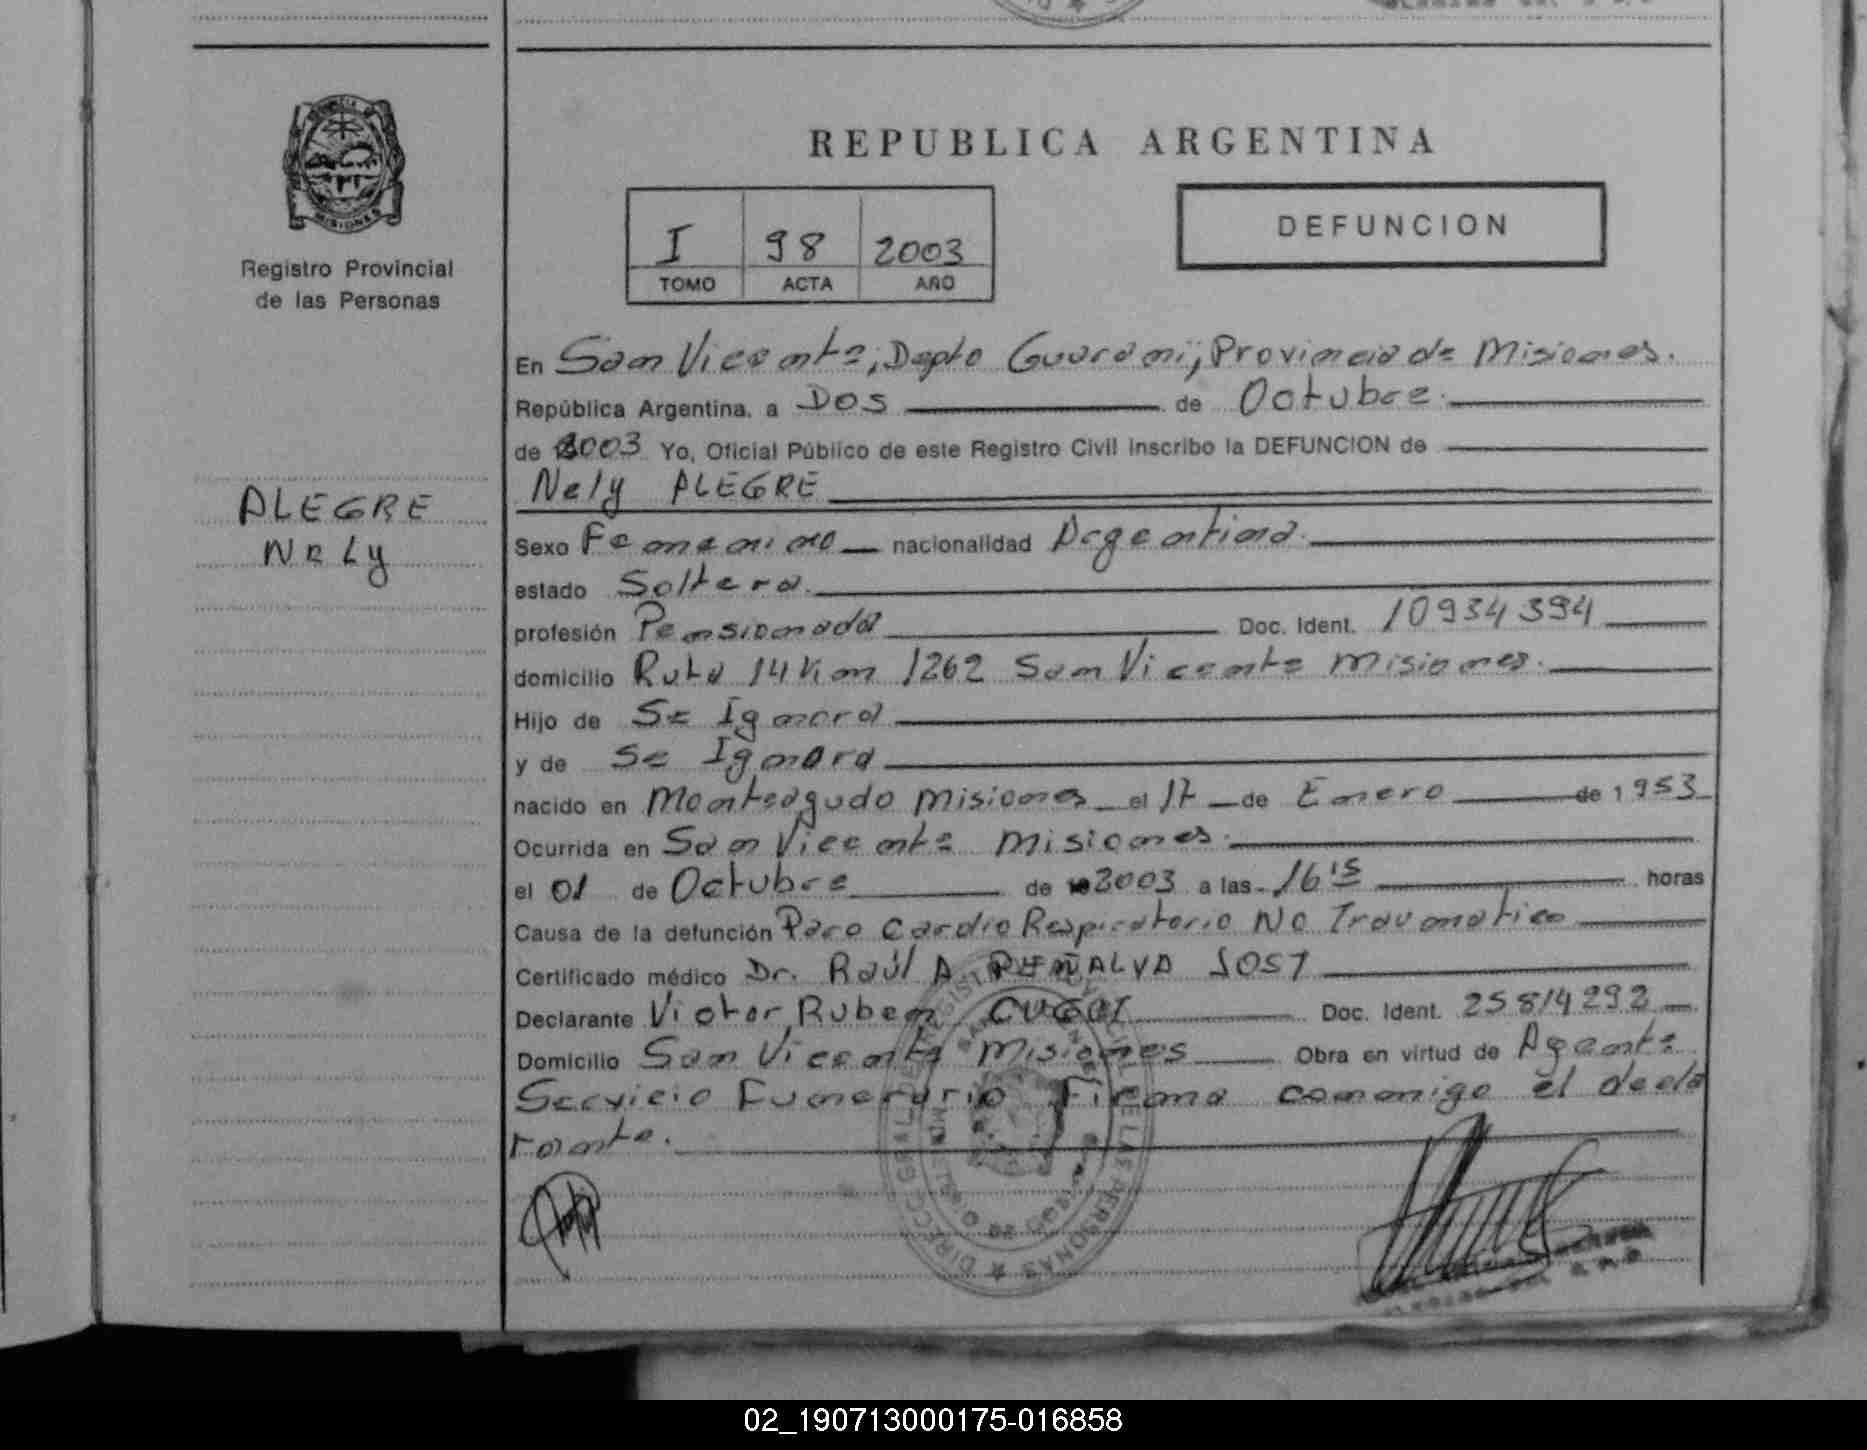 REPUBLICA ARGENTINA
MISIONES
Registro Provincial
de las Personas
I 98 2003
TOMO ACTA AÑO
DEFUNCION
ALEGRE
Nely
En San Vicente, Depto Guarani, Provincia de Misiones.
República Argentina, a Dos de Octubre
de 2003 Yo, Oficial Público de este Registro Civil inscribo la DEFUNCION de
Nely ALEGRE
Sexo Femenino nacionalidad Argentina.
estado Soltera.
profesión Pensionada Doc. Ident. 10934394
domicilio Ruta 14 Km 1262 San Vicente Misiones.
Hijo de Se Ignora
y de Se Ignora
nacido en Monteagudo Misiones el 17 de Enero de 1953
Ocurrida en San Vicente Misiones.
el 01 de Octubre de 2003 a las 16 15 horas
Causa de la defunción Paro Cardio Respiratorio No Traumatico
Certificado médico Dr. Raúl A PEÑALVA SOST
Declarante Victor Ruben Doc. Ident. 25814292
Domicilio San Vicente Misiones Obra en virtud de Agente
Servicio Funerario Firma conmigo el decla
rante.
02_190713000175-016858